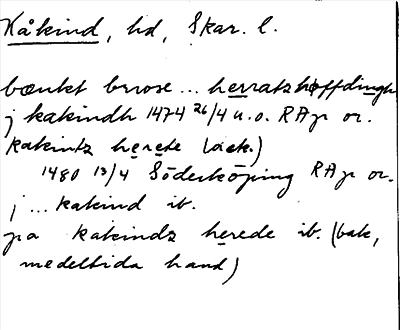 Kåkind, hd, Skar. l.
bænkt bwose ... herratzhøffdingh
j kakindh 1474 26/4 u.o. RAp or.
kakintz herete (ack.)
1480 13/4 Söderköping RAp or.
j ... kakind ib.
pa kakindz herede ib. (bak,
medeltida hand)